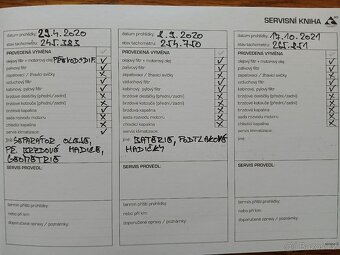 SERVISNÍ KNIHA
datum prohlídky: 29.4.2020
stav tachometru: 245.383
PROVEDENÁ VÝMĚNA
olejový filtr + motorový olej
palivový filtr
zapalovací / žhavicí svíčky
vzduchový filtr
kabinový, pylový filtr
brzdové destičky (přední/zadní)
brzdové kotouče (přední/zadní)
brzdová kapalina
sada rozvodu motoru
chladicí kapalina
servis klimatizace
jiné: SEPARÁTOR OLEJE,
PŘ. BRZDOVÉ HADICE,
GEOMETRIE
SERVIS PROVEDL:
termín příští prohlídky:
nebo při km:
doporučené opravy / poznámky:
datum prohlídky: 2.9.2020
stav tachometru: 254.750
PROVEDENÁ VÝMĚNA
olejový filtr + motorový olej
palivový filtr
zapalovací / žhavicí svíčky
vzduchový filtr
kabinový, pylový filtr
brzdové destičky (přední/zadní)
brzdové kotouče (přední/zadní)
brzdová kapalina
sada rozvodu motoru
chladicí kapalina
servis klimatizace
jiné: BATERIE, PODTLAKOVÉ
HADIČKY
SERVIS PROVEDL:
termín příští prohlídky:
nebo při km:
doporučené opravy / poznámky:
datum prohlídky: 17.10.2021
stav tachometru:
PROVEDENÁ VÝMĚNA
olejový filtr + motorový olej
palivový filtr
zapalovací / žhavicí svíčky
vzduchový filtr
kabinový, pylový filtr
brzdové destičky (přední/zadní)
brzdové kotouče (přední/zadní)
brzdová kapalina
sada rozvodu motoru
chladicí kapalina
servis klimatizace
jiné:
SERVIS PROVEDL:
termín příští prohlídky:
nebo při km:
doporučené opravy / poznámky: